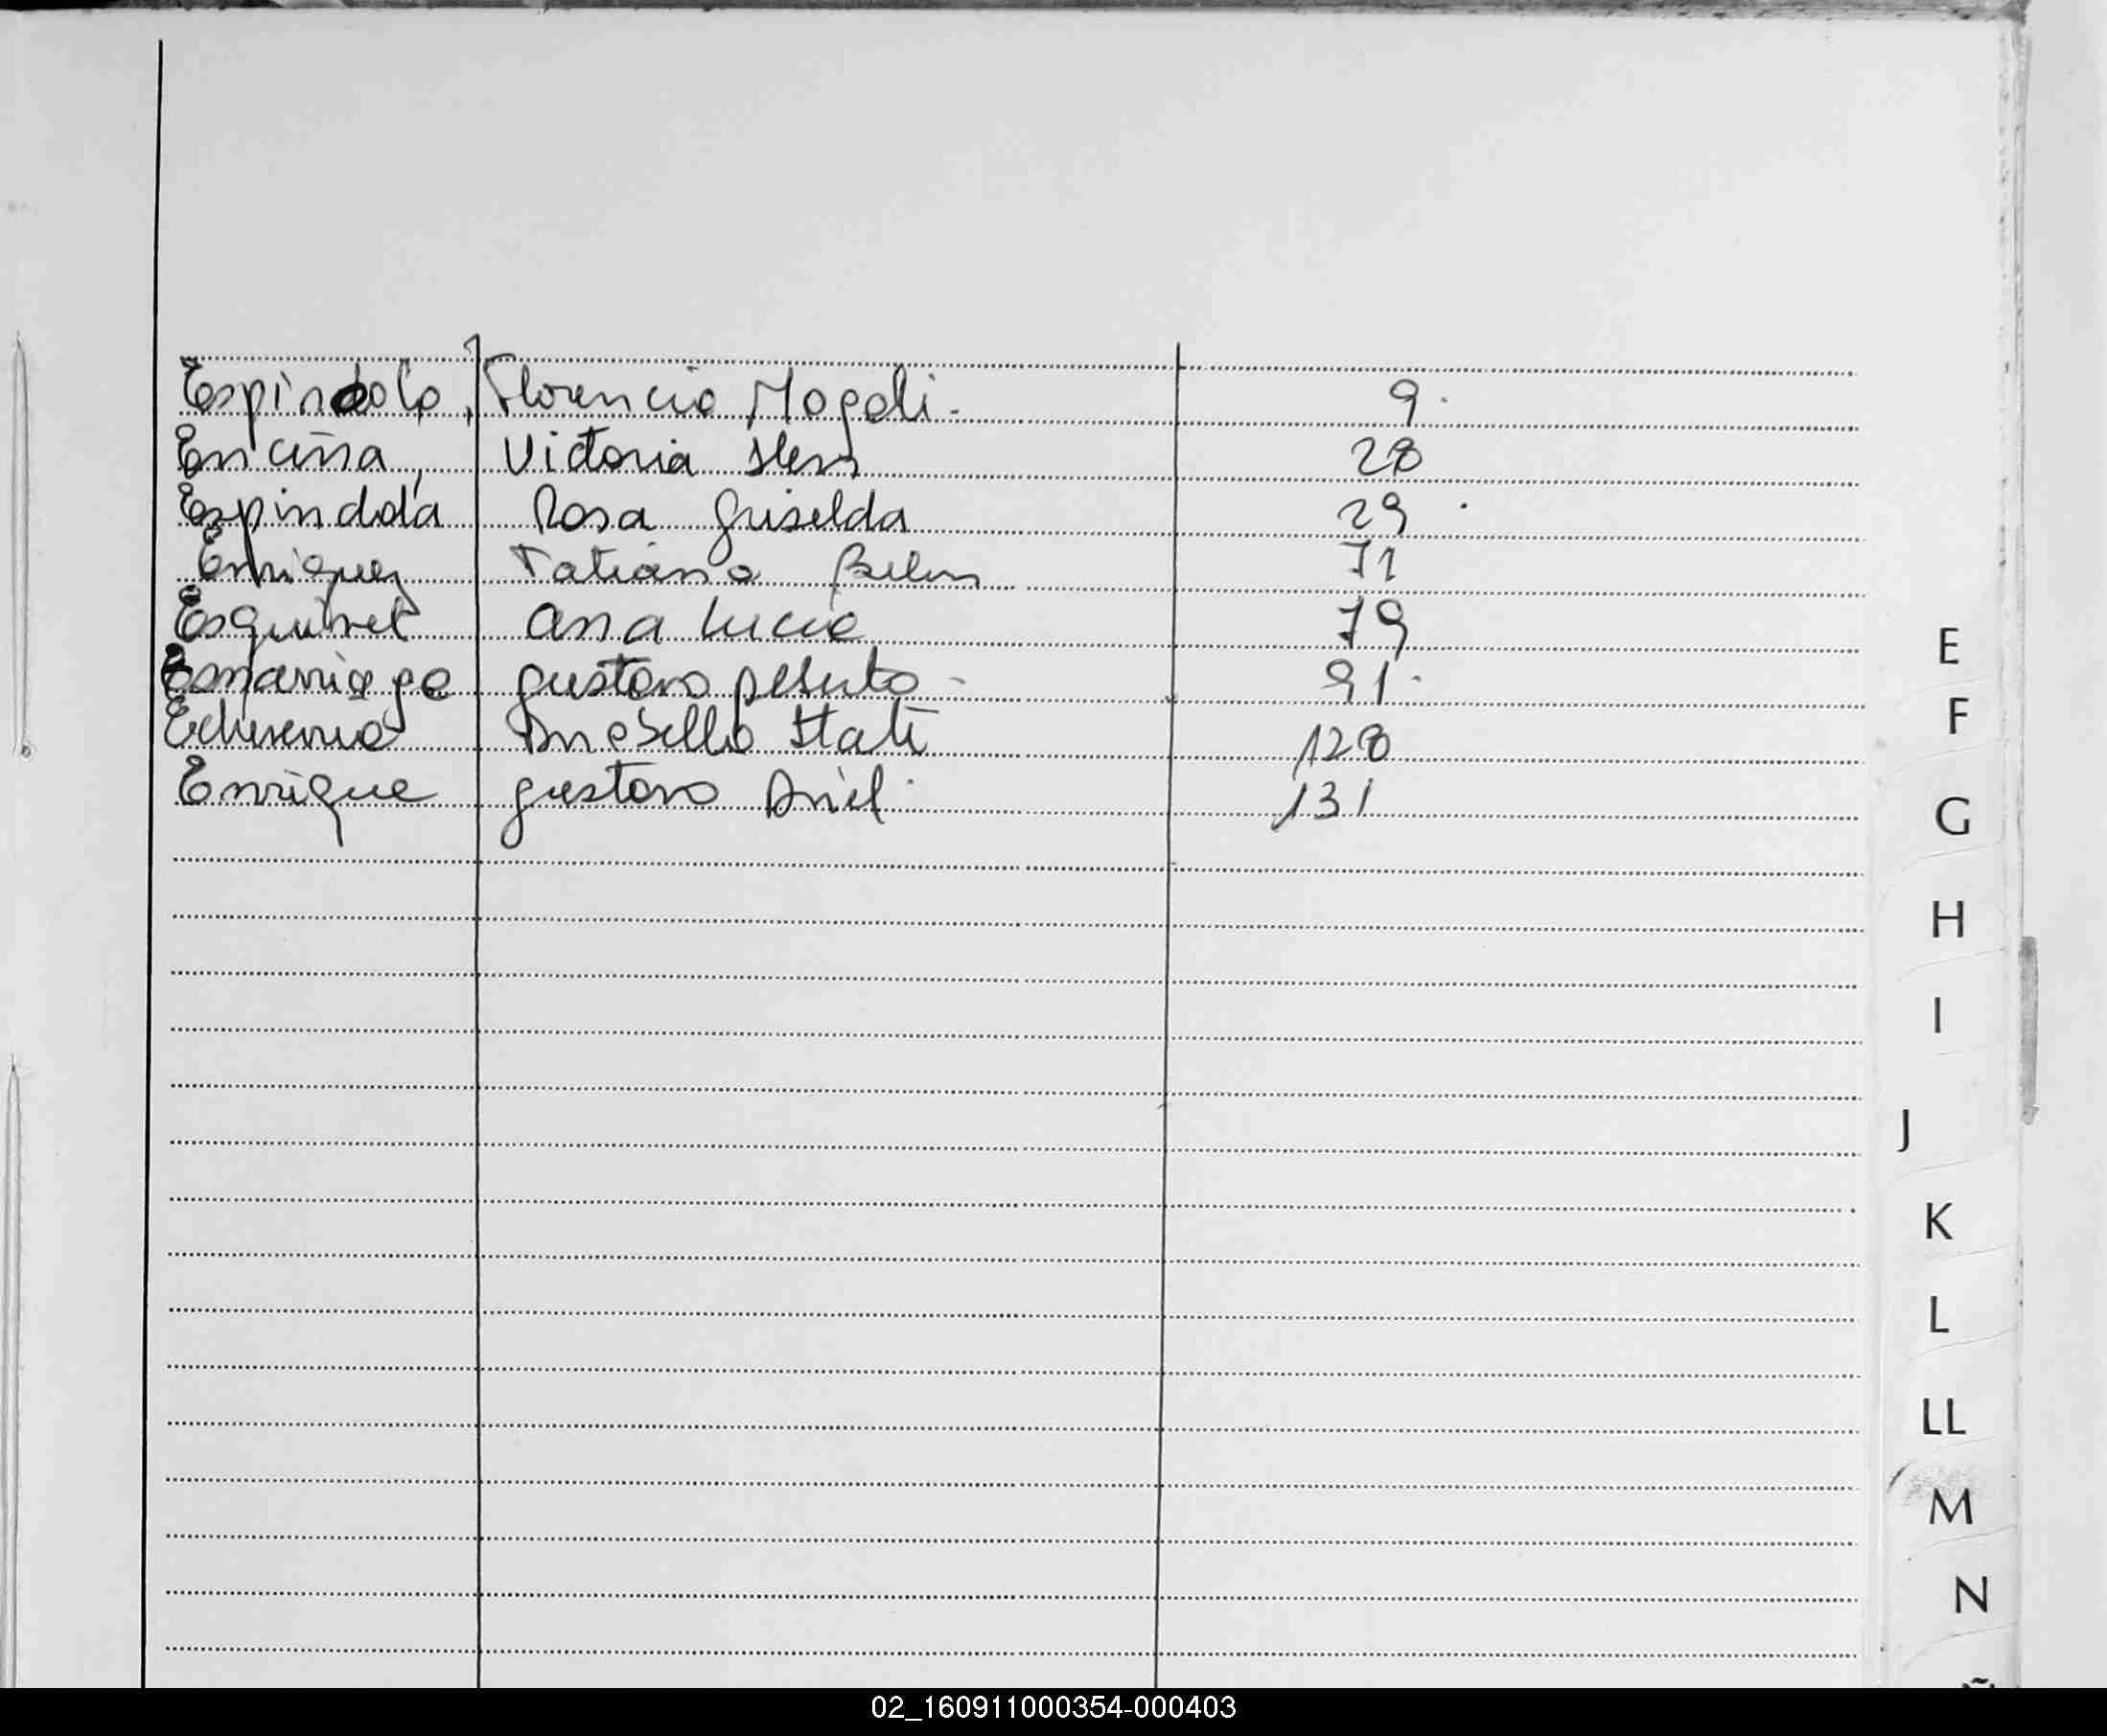 Espindola, Florencia Magali - 9.
Encina, Victoria 28
Espindola Rosa Griselda 29.
Enriquez Tatiana Belen 71
Esquivel Ana Lucia 79
Gustavo 91.
Echeverria 128
Enrique Gustavo Ariel. 131
E
F
G
H
I
J
K
L
LL
M
N
Ñ
02_160911000354-000403